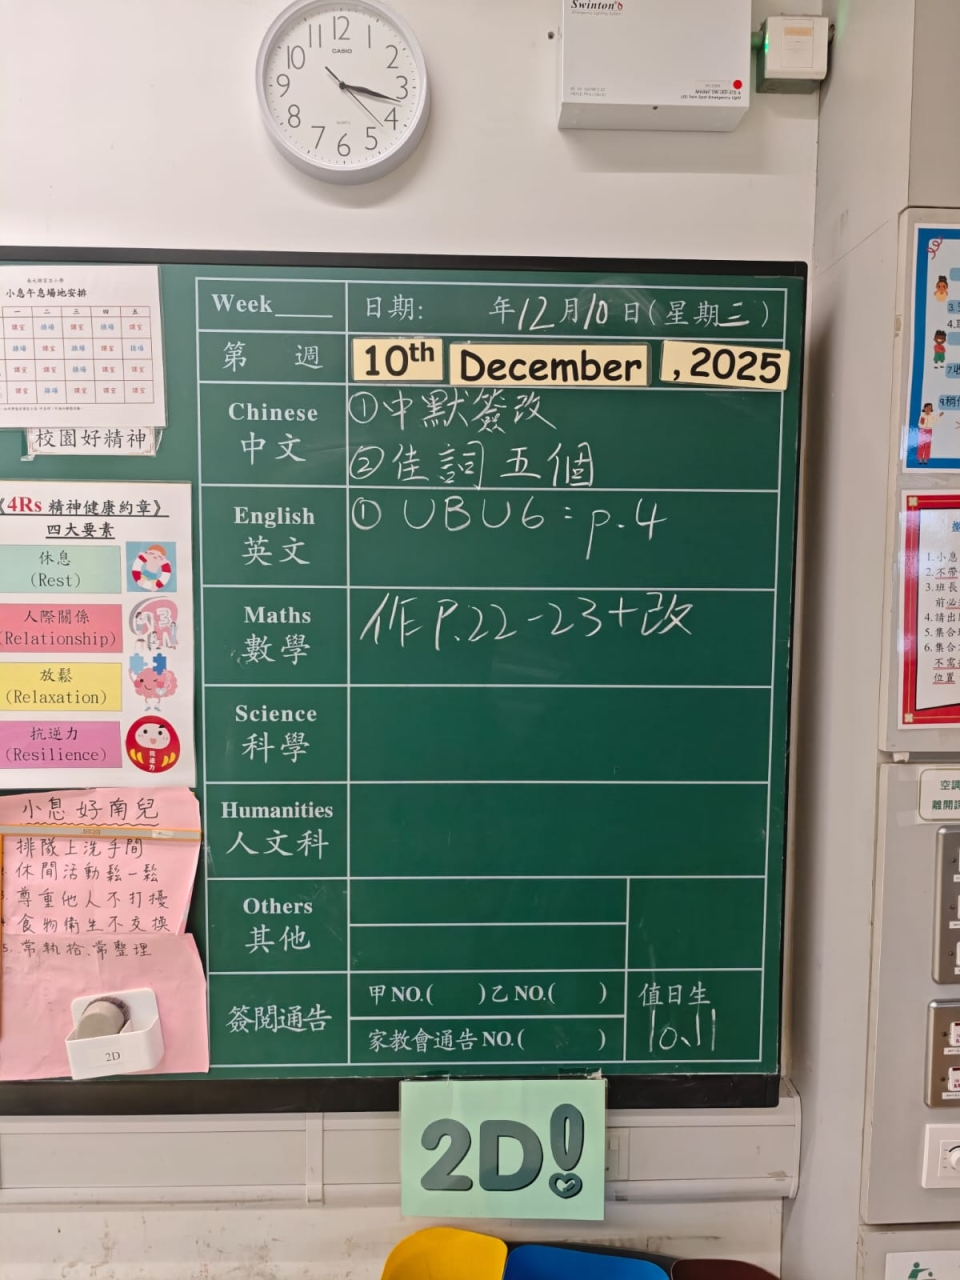 12
1
2
3
4
5
6
7
8
9
10
11
CASIO
Swinton's
小息午息場地安排
一 二 三 四 五
校園好精神
《4Rs 精神健康約章》
四大要素
休息
(Rest)
人際關係
(Relationship)
放鬆
(Relaxation)
抗逆力
(Resilience)
小息好南兒
排隊上洗手間
休閒活動鬆一鬆
尊重他人不打擾
食物衛生不交換
5. 常執拾、常整理
2D
Week____ 日期: 年12月10日(星期三)
第 週 10th December , 2025
Chinese 中文 ①中默簽改
②佳詞五個
English 英文 ① UBU6 : p.4
Maths 數學 作P.22-23+改
Science 科學
Humanities 人文科
Others 其他
簽閱通告 甲NO.( )乙NO.( )
家教會通告NO.( )
值日生
10、11
2D!
1.小息
2.不帶
3.班長
前必
4.請出
5.集合
6.集合
不需
位置
空調
離開課